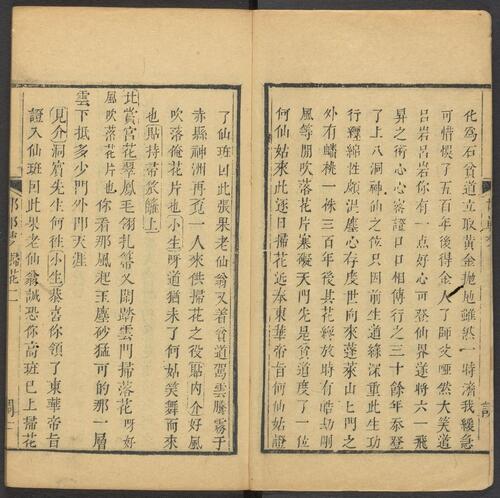 化為石貧道立取黃金拋地雖然一時濟我緩急
可惜悞了五百年後得金人了師父啞然大笑道
呂岩呂岩你有一点好心可登仙界遂將六一飛
昇之術心心密證口口相傳行之三十餘年忝登
了上八洞神仙之位只因前生道緣深重此生功
行纏綿性頗混塵心存度世向來蓬萊山上門之
外有蟠桃一株三百年後其花纔放時有皓劫剛
風等閒吹落花片塞礙天門先是貧道度了一位
何仙姑來此逐日掃花近奉東華帝旨何仙姑證
了仙班因此張果老仙翁又着貧道駕雲騰霧于
赤縣神洲再覔一人來供掃花之役貼内介好風
吹落俺花片也小生呀道猶未了何姑笑舞而來
也貼持帚上
北賞宮花翠鳳毛翎扎箒叉閒踏雲門掃落花呀好
風吹落花片也你看那風起玉塵砂猛可的那一層
雲下抵多少門外即天涯
見介洞賓先生何徃小生恭喜你領了東華帝旨
證入仙班因此果老仙翁誠恐你高班已上掃花
邯鄲夢 掃花 二